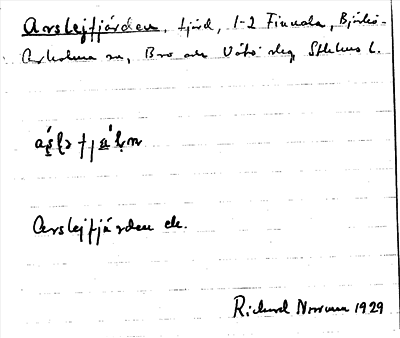 Arslejfjärden, fjärd, 1-2 Finnala, Björkö-
Arholma sn, Bro och Vätö skg Sthlms l.
Arslejfjärden ek.
Richard Norman 1929